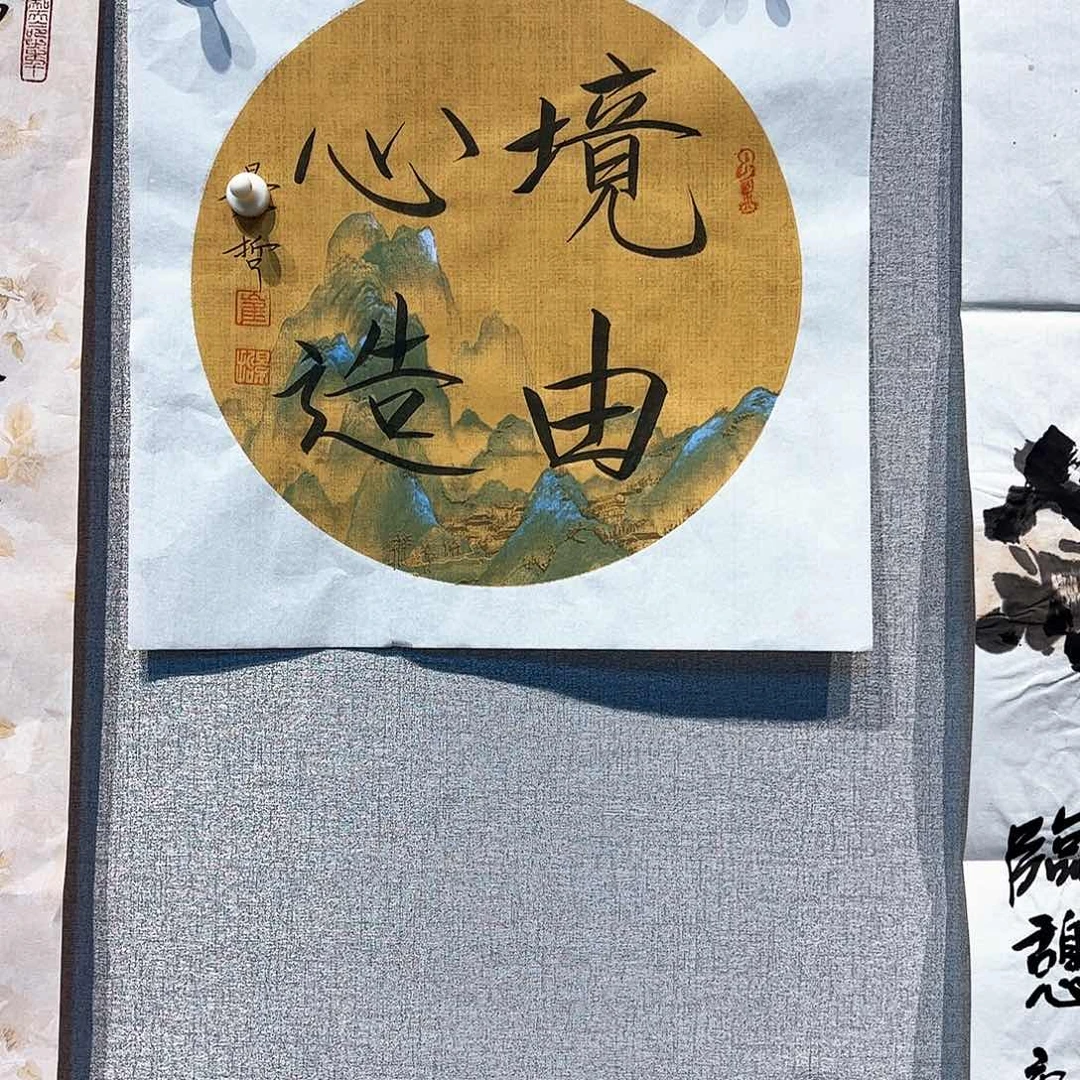 境由
心造
哲
臨
憩